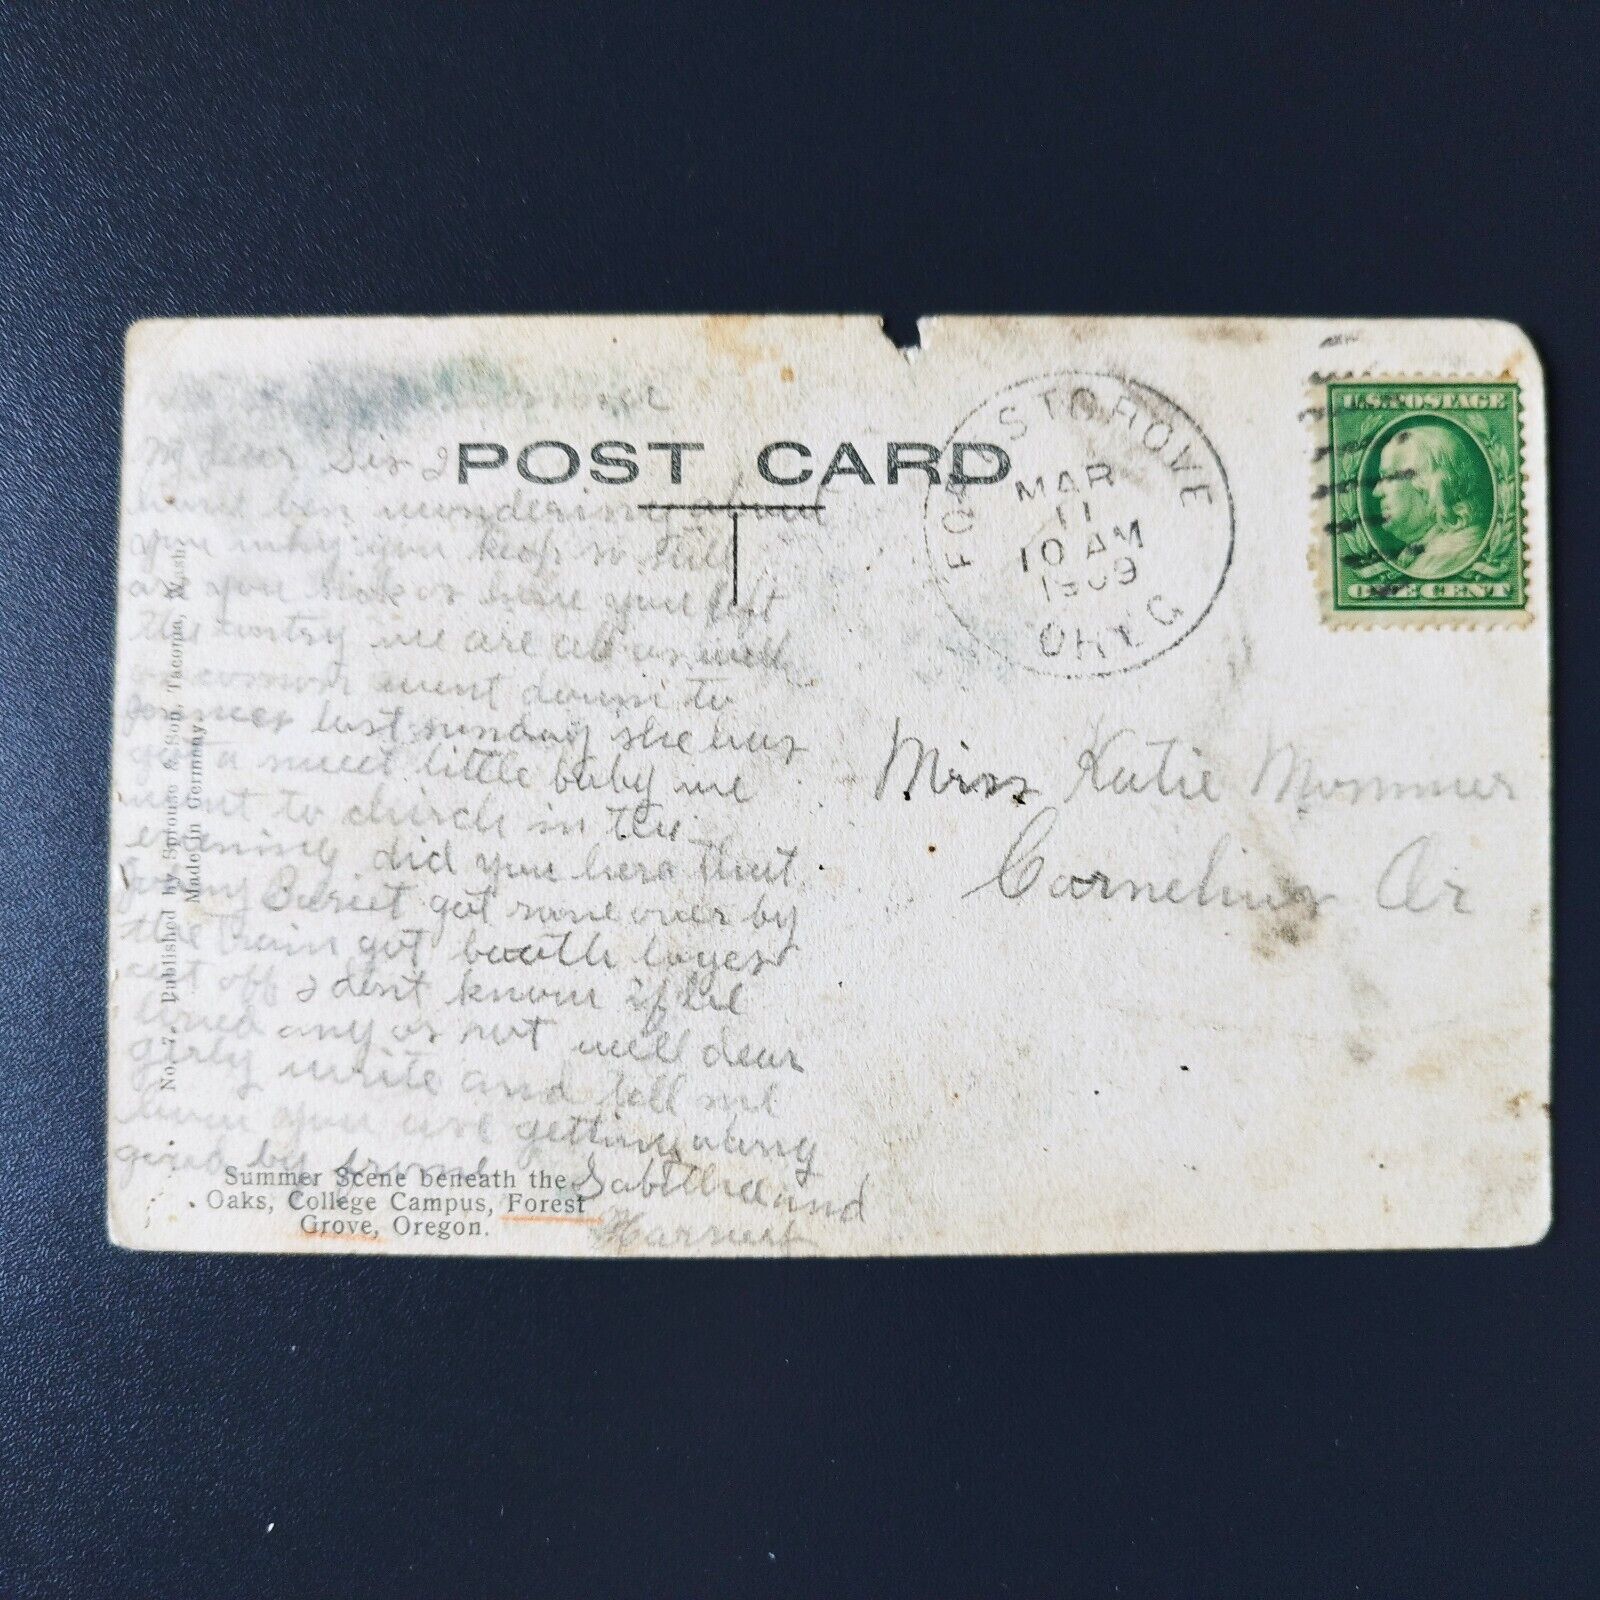 POST CARD
My dear Sis I
have ben wondering about
you why you keep so still
are you sick or have you left
the contry we are all as well
as common went down to
last sunday she has
got a sweet little baby we
went to chirch in the
evaning did you here that
got rone over by
the train got booth loges
cut off I dont know if he
lived any or not well dear
girly write and tell me
how you are getting along
by from Sabilla and
Harriet
FOREST GROVE
MAR
11
10 AM
1909
OREG
U.S. POSTAGE
ONE CENT
Miss Katie Mommer
Cornelius Or
No. 7. Published by Sprouse & Son, Tacoma, Wash.
Made in Germany.
Summer Scene beneath the
Oaks, College Campus, Forest
Grove, Oregon.